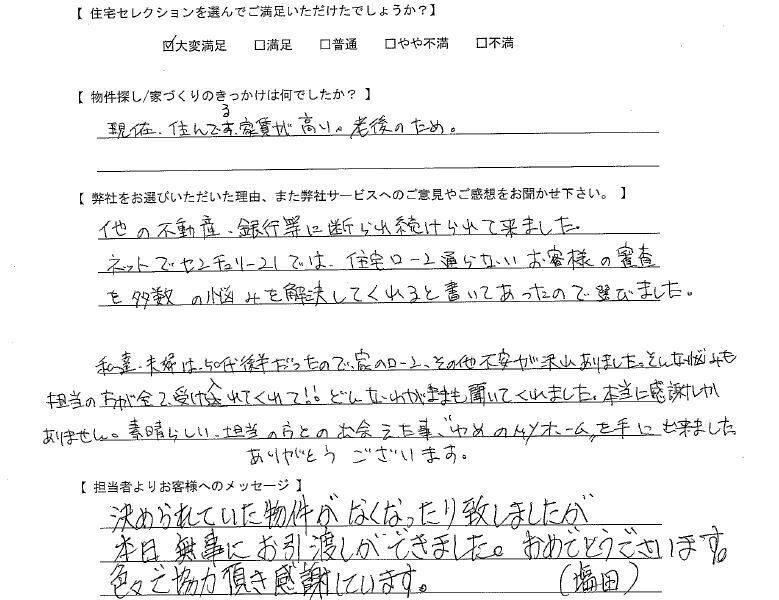 【 住宅セレクションを選んでご満足いただけたでしょうか？】
☑大変満足 □満足 □普通 □やや不満 □不満
【 物件探し/家づくりのきっかけは何でしたか？ 】
現在、住んでる家賃が高い。老後のため。
【 弊社をお選びいただいた理由、また弊社サービスへのご意見やご感想をお聞かせ下さい。 】
他の不動産、銀行等に断られ続けられて来ました。
ネットでセンチュリー21では、住宅ローン通らないお客様の審査
を多数の悩みを解決してくれると書いてあったので選びました。
私達、夫婦は、50代後半だったので、家のローン、その他不安が沢山ありました。そんな悩みも
担当の方が全て受け入れてくれて!! どんなわがままも聞いてくれました。本当に感謝しか
ありません。素晴らしい、担当の方との出会えた事、ゆめのMyホームを手に出来ました
ありがとうございます。
【 担当者よりお客様へのメッセージ 】
決められていた物件がなくなったり致しましたが
本日無事にお引渡しができました。おめでとうございます。
色々ご協力頂き感謝しています。 (塩田)